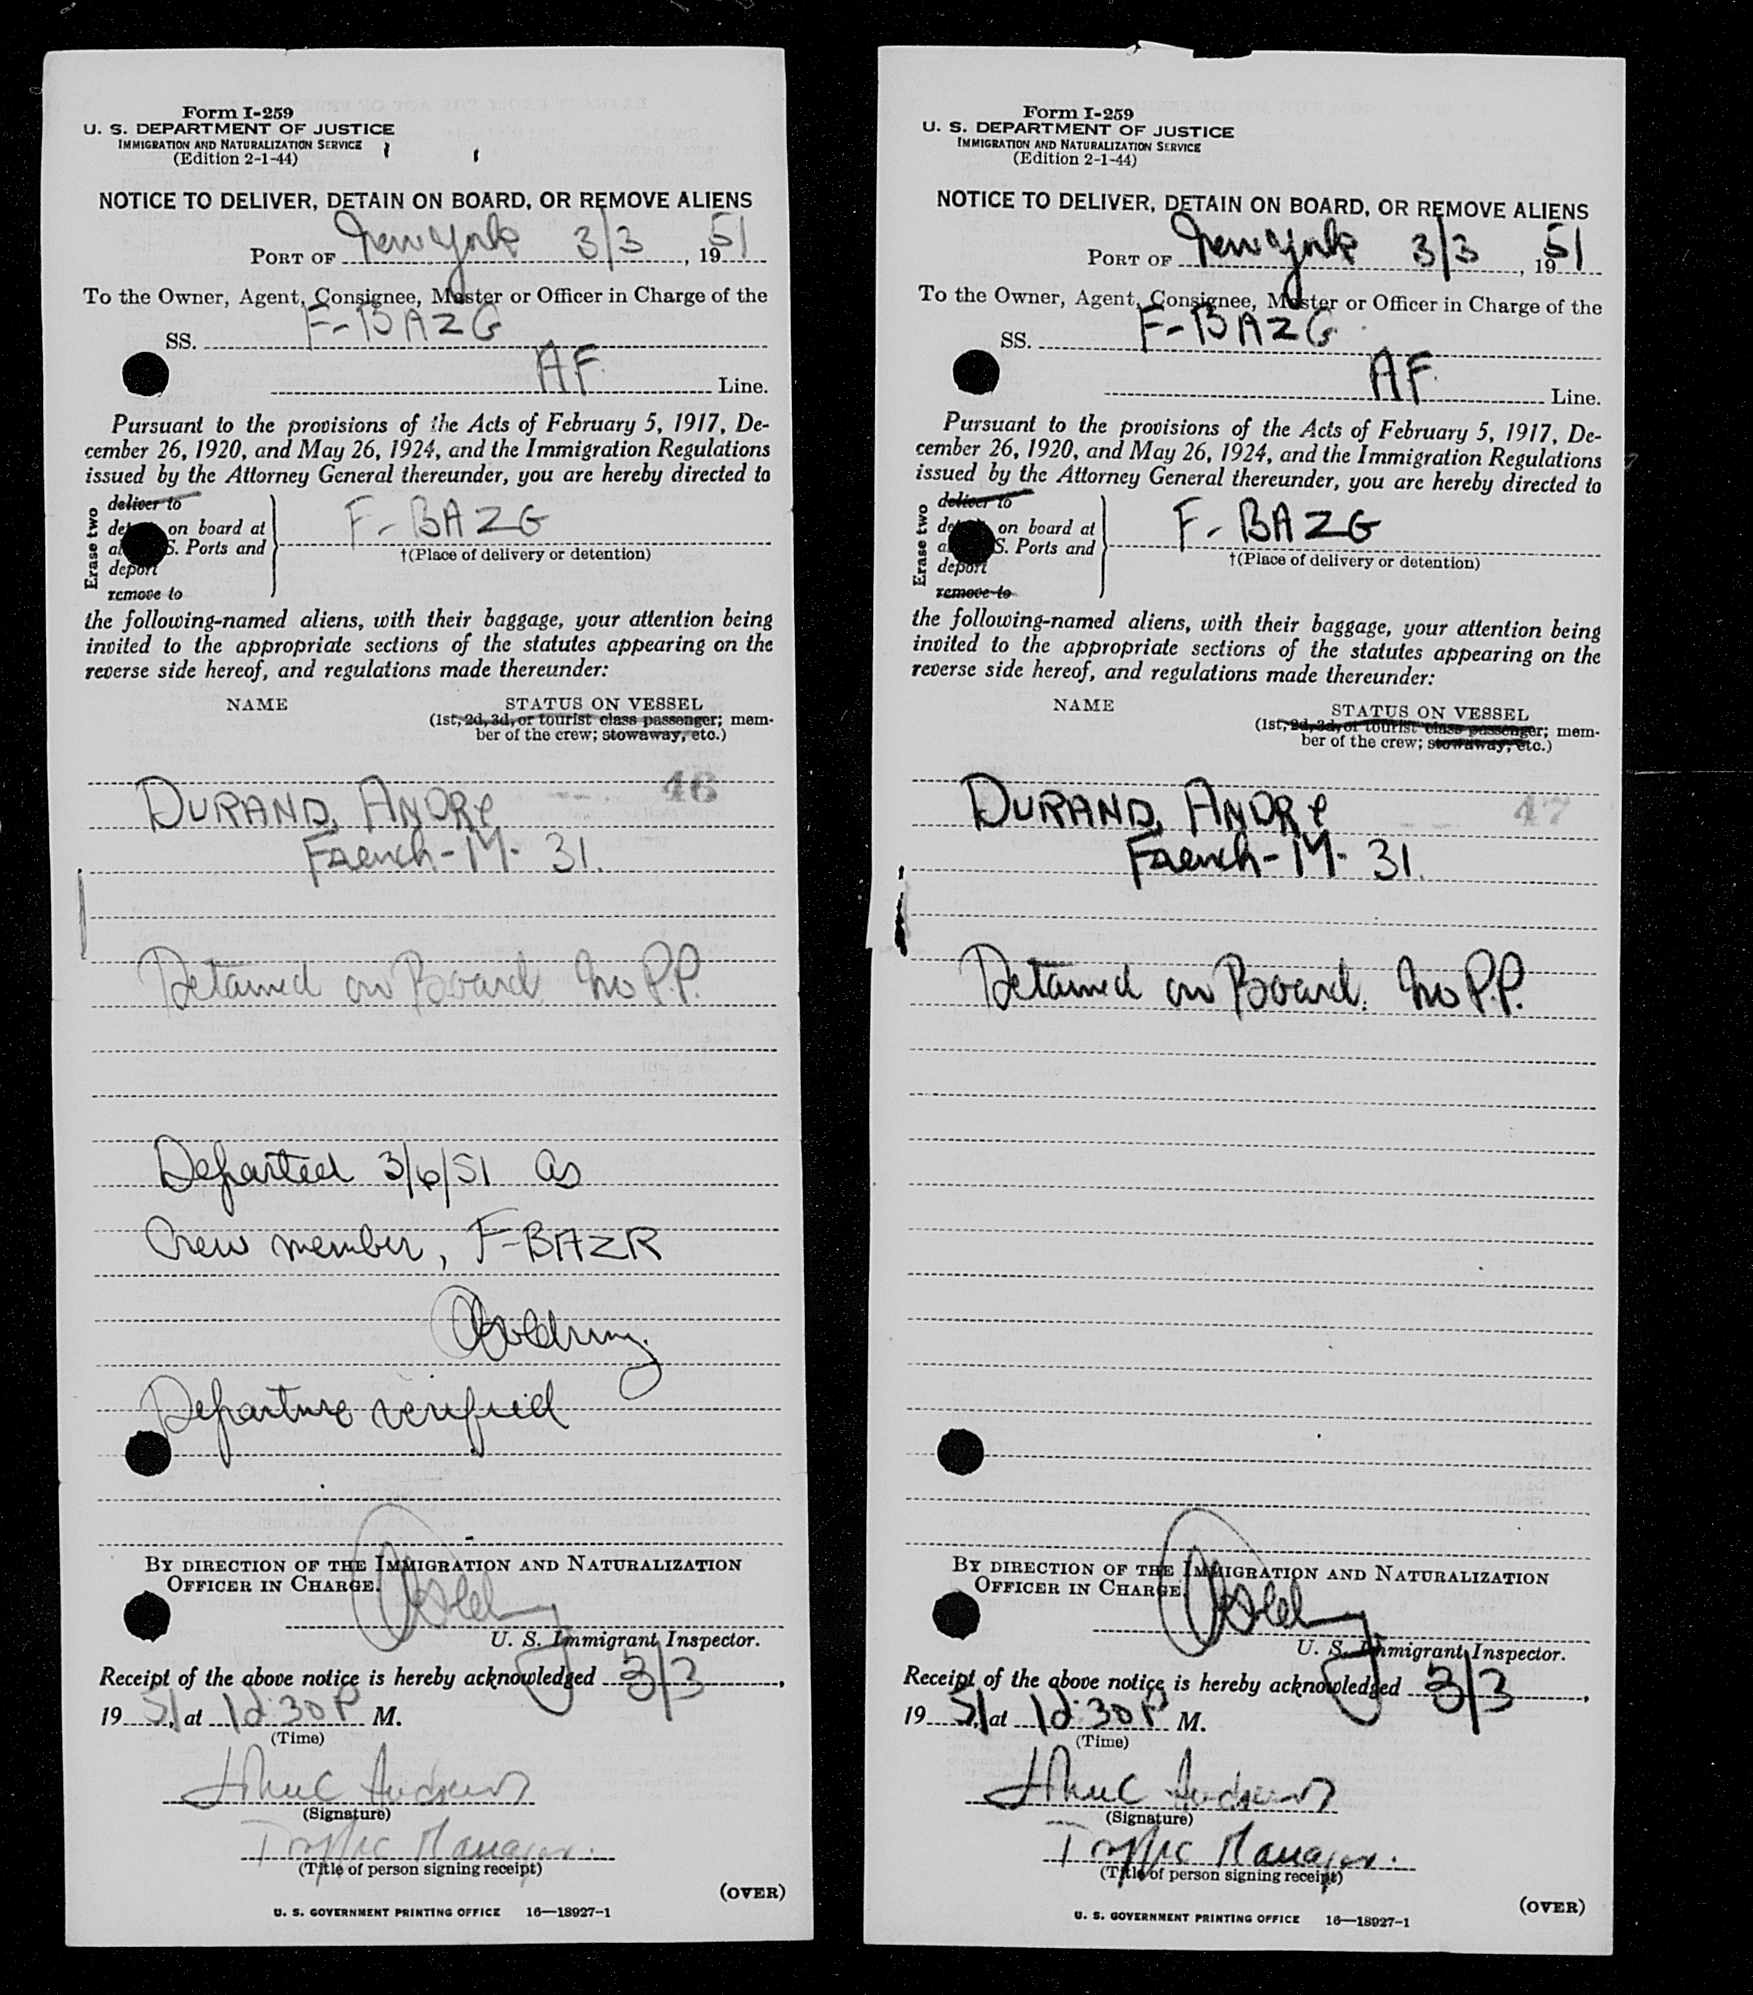 Form I-259
U. S. DEPARTMENT OF JUSTICE
IMMIGRATION AND NATURALIZATION SERVICE
(Edition 2-1-44)
NOTICE TO DELIVER, DETAIN ON BOARD, OR REMOVE ALIENS
PORT OF New York 3/3, 1951
To the Owner, Agent, Consignee, Master or Officer in Charge of the
SS. F-BAZG
AF Line.
Pursuant to the provisions of the Acts of February 5, 1917, De-
cember 26, 1920, and May 26, 1924, and the Immigration Regulations
issued by the Attorney General thereunder, you are hereby directed to
Erase two
deliver to
on board at
S. Ports and
deport
remove to
F-BAZG
†(Place of delivery or detention)
the following-named aliens, with their baggage, your attention being
invited to the appropriate sections of the statutes appearing on the
reverse side hereof, and regulations made thereunder:
NAME
STATUS ON VESSEL
(1st, 2d, 3d, or tourist class passenger; mem-
ber of the crew; stowaway, etc.)
46
DURAND, ANDRe
French-M- 31.
Detained on Board no P.P.
Departed 3/6/51 as
Crew member, F-BAZR
Departure verified
BY DIRECTION OF THE IMMIGRATION AND NATURALIZATION
OFFICER IN CHARGE.
U. S. Immigrant Inspector.
Receipt of the above notice is hereby acknowledged 3/3,
1951, at 12:30 P M.
(Time)
(Signature)
Traffic Manager.
(Title of person signing receipt)
(OVER)
U. S. GOVERNMENT PRINTING OFFICE 16—18927-1
Form I-259
U. S. DEPARTMENT OF JUSTICE
IMMIGRATION AND NATURALIZATION SERVICE
(Edition 2-1-44)
NOTICE TO DELIVER, DETAIN ON BOARD, OR REMOVE ALIENS
PORT OF New York 3/3, 1951
To the Owner, Agent, Consignee, Master or Officer in Charge of the
SS. F-BAZG
AF Line.
Pursuant to the provisions of the Acts of February 5, 1917, De-
cember 26, 1920, and May 26, 1924, and the Immigration Regulations
issued by the Attorney General thereunder, you are hereby directed to
Erase two
deliver to
on board at
S. Ports and
deport
remove to
F-BAZG
†(Place of delivery or detention)
the following-named aliens, with their baggage, your attention being
invited to the appropriate sections of the statutes appearing on the
reverse side hereof, and regulations made thereunder:
NAME
STATUS ON VESSEL
(1st, 2d, 3d, or tourist class passenger; mem-
ber of the crew; stowaway, etc.)
47
DURAND, ANDRe
French-M- 31.
Detained on Board. no P.P.
BY DIRECTION OF THE IMMIGRATION AND NATURALIZATION
OFFICER IN CHARGE.
U. S. Immigrant Inspector.
Receipt of the above notice is hereby acknowledged 3/3,
1951, at 12:30 P M.
(Time)
(Signature)
Traffic Manager.
(Title of person signing receipt)
(OVER)
U. S. GOVERNMENT PRINTING OFFICE 16—18927-1